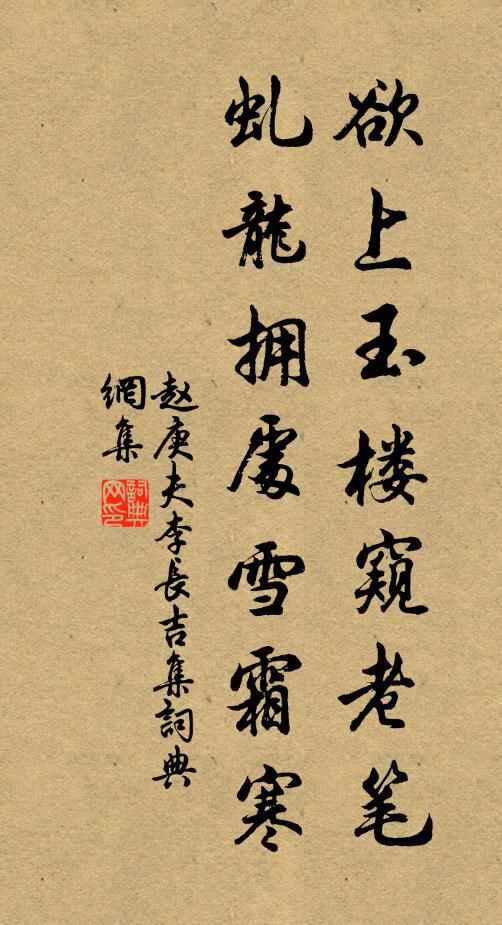 欲上玉楼窥老笔
虬龙拥处雪霜寒
赵庚夫李长吉集词典
网集
词典网印